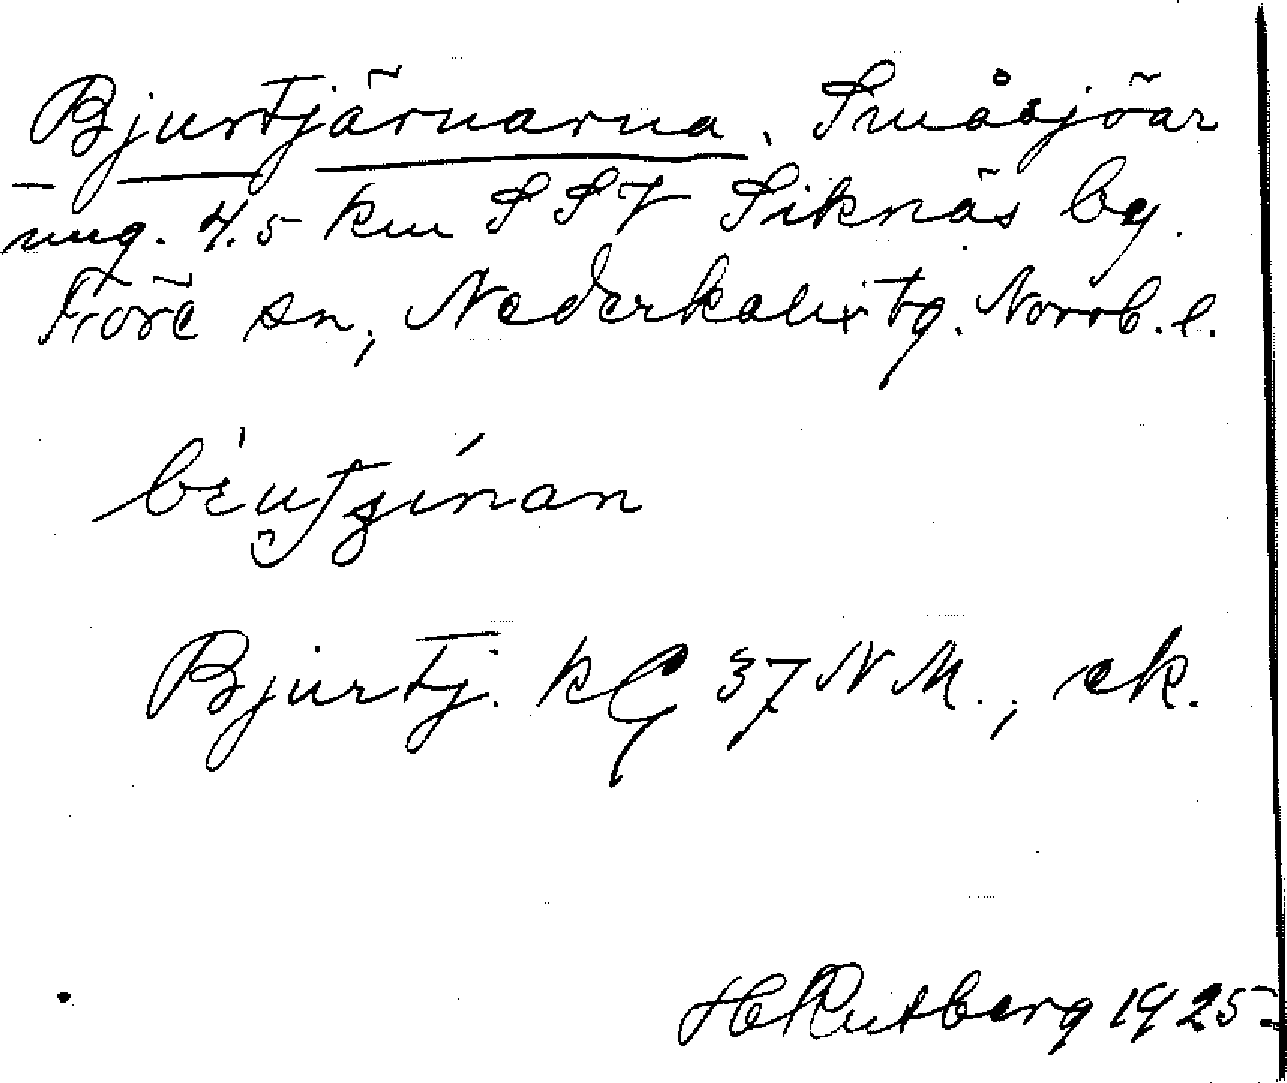 Bjurtjärnarna. Småsjöar
ung. 4.5 km SSV Siknäs by.
Töre sn, Nederkalix tg. Norrb. l.
Bjurtj. kG 37 NM., ek.
H Rutberg 1925